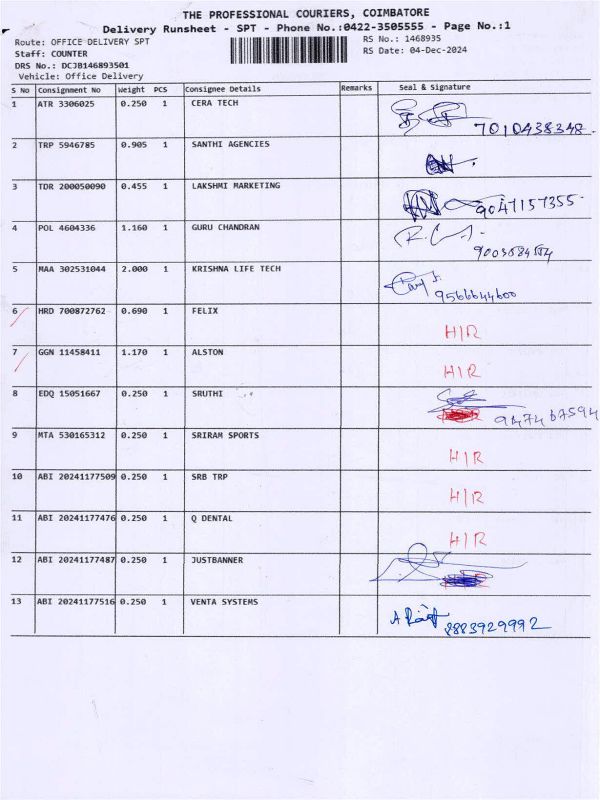 THE PROFESSIONAL COURIERS, COIMBATORE
Delivery Runsheet - SPT - Phone No.:0422-3505555 - Page No.:1
Route: OFFICE DELIVERY SPT RS No.: 1468935
Staff: COUNTER RS Date: 04-Dec-2024
DRS No.: DCJB146893501
Vehicle: Office Delivery
S No Consignment No Weight PCS Consignee Details Remarks Seal & Signature
1 ATR 3306025 0.250 1 CERA TECH 7010438348
2 TRP 5946785 0.905 1 SANTHI AGENCIES
3 TDR 200050090 0.455 1 LAKSHMI MARKETING 9047157355
4 POL 4604336 1.160 1 GURU CHANDRAN
5 MAA 302531044 2.000 1 KRISHNA LIFE TECH 9566644600
6 HRD 700872762 0.690 1 FELIX H/R
7 GGN 11458411 1.170 1 ALSTON H/R
8 EDQ 15051667 0.250 1 SRUTHI 947467594
9 MTA 530165312 0.250 1 SRIRAM SPORTS H/R
10 ABI 20241177509 0.250 1 SRB TRP H/R
11 ABI 20241177476 0.250 1 Q DENTAL H/R
12 ABI 20241177487 0.250 1 JUSTBANNER
13 ABI 20241177516 0.250 1 VENTA SYSTEMS 8883929992